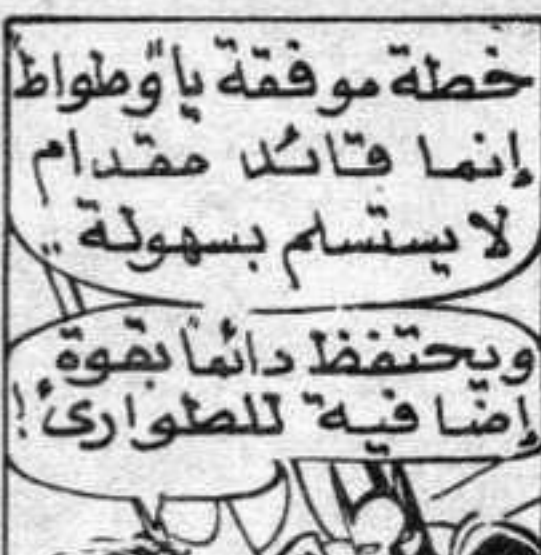 خطة موفقة يا "وطواط"
إنما قائد مقدام
لا يستسلم بسهولة ..
ويحتفظ دائماً بقوة
إضافية للطوارئ!